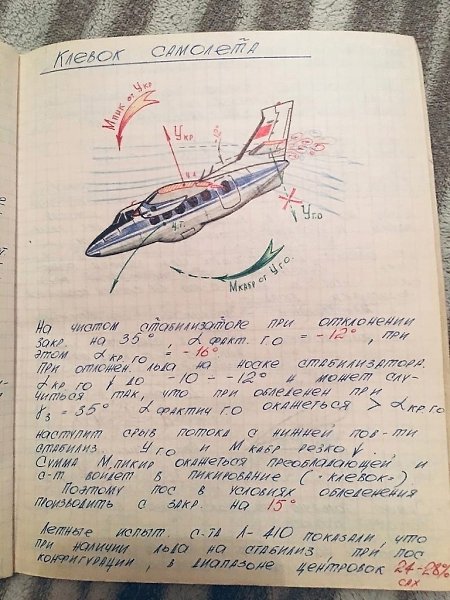 Клевок самолета
М пик от Укр.
Укр.
ц.т.
Уг.о
М кабр от Уг.о.
На чистом стабилизаторе при отклонении
закр. на 35°, α факт. г.о = -12°, при
этом α кр. го = -16°.
При отложен. льда на носке стабилизатора.
α кр. го ↓ до -10 - -12° и может слу-
читься так, что при обледенен при
γз = 35° α фактич го окажеться > α кр. го
наступит срыв потока с нижней пов-ти
стабилиз. Уго и М кабр. резко ↓.
Сумма М пикир окажеться преобладающей и
с-т войдет в пикирование ("клевок")
Поэтому пос в условиях обледенения
производить с закр. на 15°
Летные испыт. с-та Л-410 показали, что
при наличии льда на стабилиз, при пос
конфигурации, в диапазоне центровок 24-28%
сах